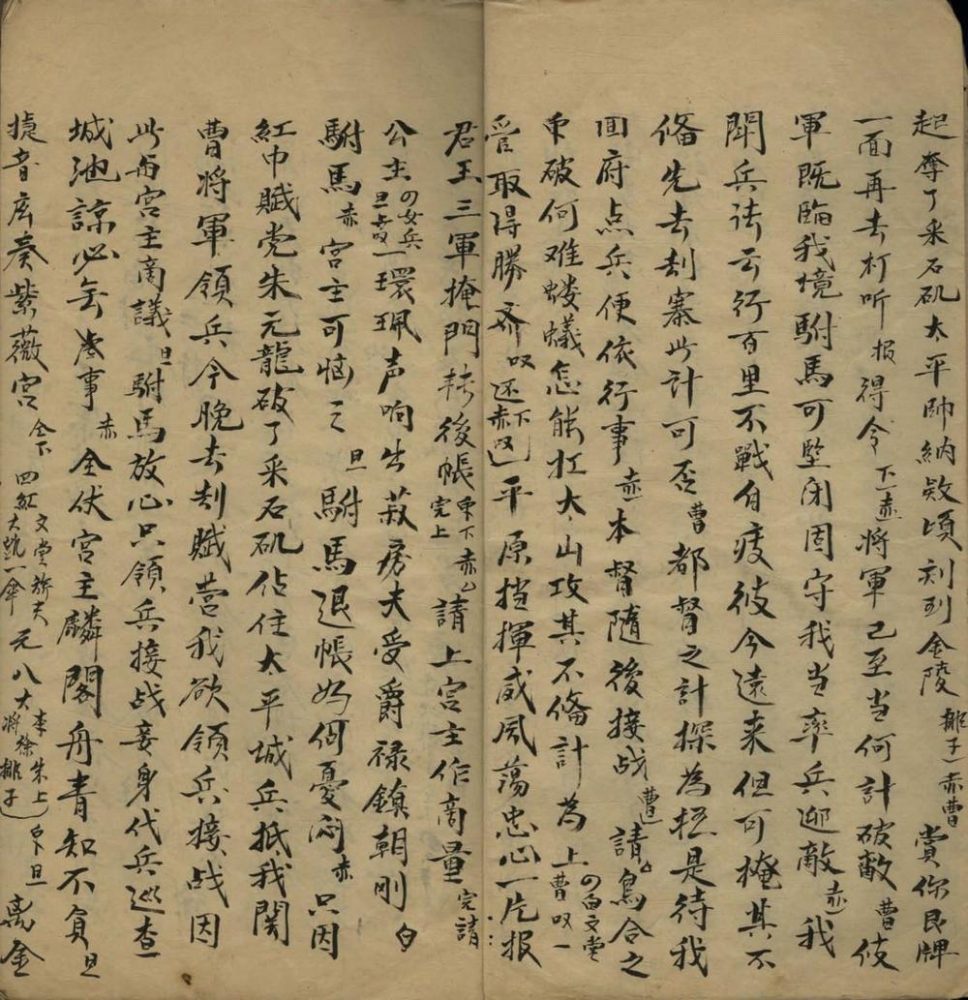 起奪了采石矶太平帥納欵頃刻到金陵報子赤曹賞你民牌
一面再去打听报得令下赤將軍已至当何計破敵曹伎
軍既臨我境駙馬可堅闭固守我当率兵迎敵赤我
聞兵法云行百里不戰自疲彼今遠来但可掩其不
俻先去刼寨此計可否曹都督之計探為極是待我
回府点兵便依行事赤本督隨後接战曹請烏合之
東破何难蝼蟻怎能扛大山攻其不俻計為上四白文堂曹叹一
营取得勝斉叹还下赤叹平原挡揮威風蕩忠心一片报
君王三軍掩門轉後帳東下完上赤請上宫主作商量完請
公主四女兵旦上叹一環珮声响出菽房夫受爵禄鎮朝剛白
駙馬赤宫主可恼旦駙馬退帳為何憂闷赤只因
紅巾賊党朱元龍破了采石矶佔住太平城兵抵我関
曹將軍領兵今晚去刼賊营我欲領兵接战因
此与宫主商議旦駙馬放心只領兵接战妾身代兵巡查
城池諒必無事赤全伏宫主麟閣丹青知不負旦
捷音店奏紫薇宫仝下四红文堂旂夫大凯一傘元八大將李徐朱上報子白旦萬金